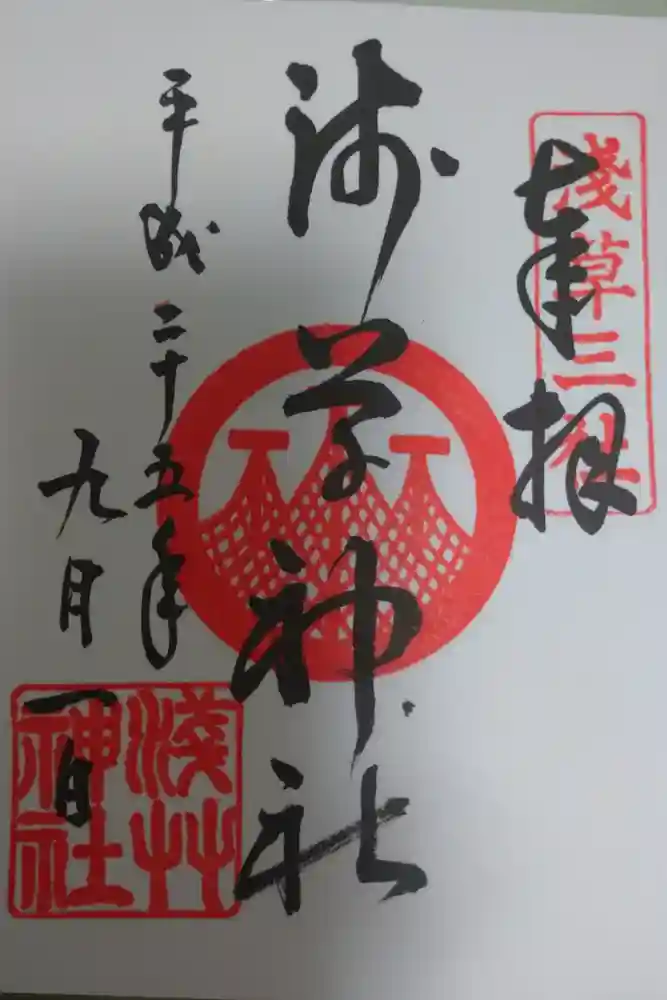 奉拝
淺草三社
浅草神社
平成二十五年
九月一日
淺草
神社